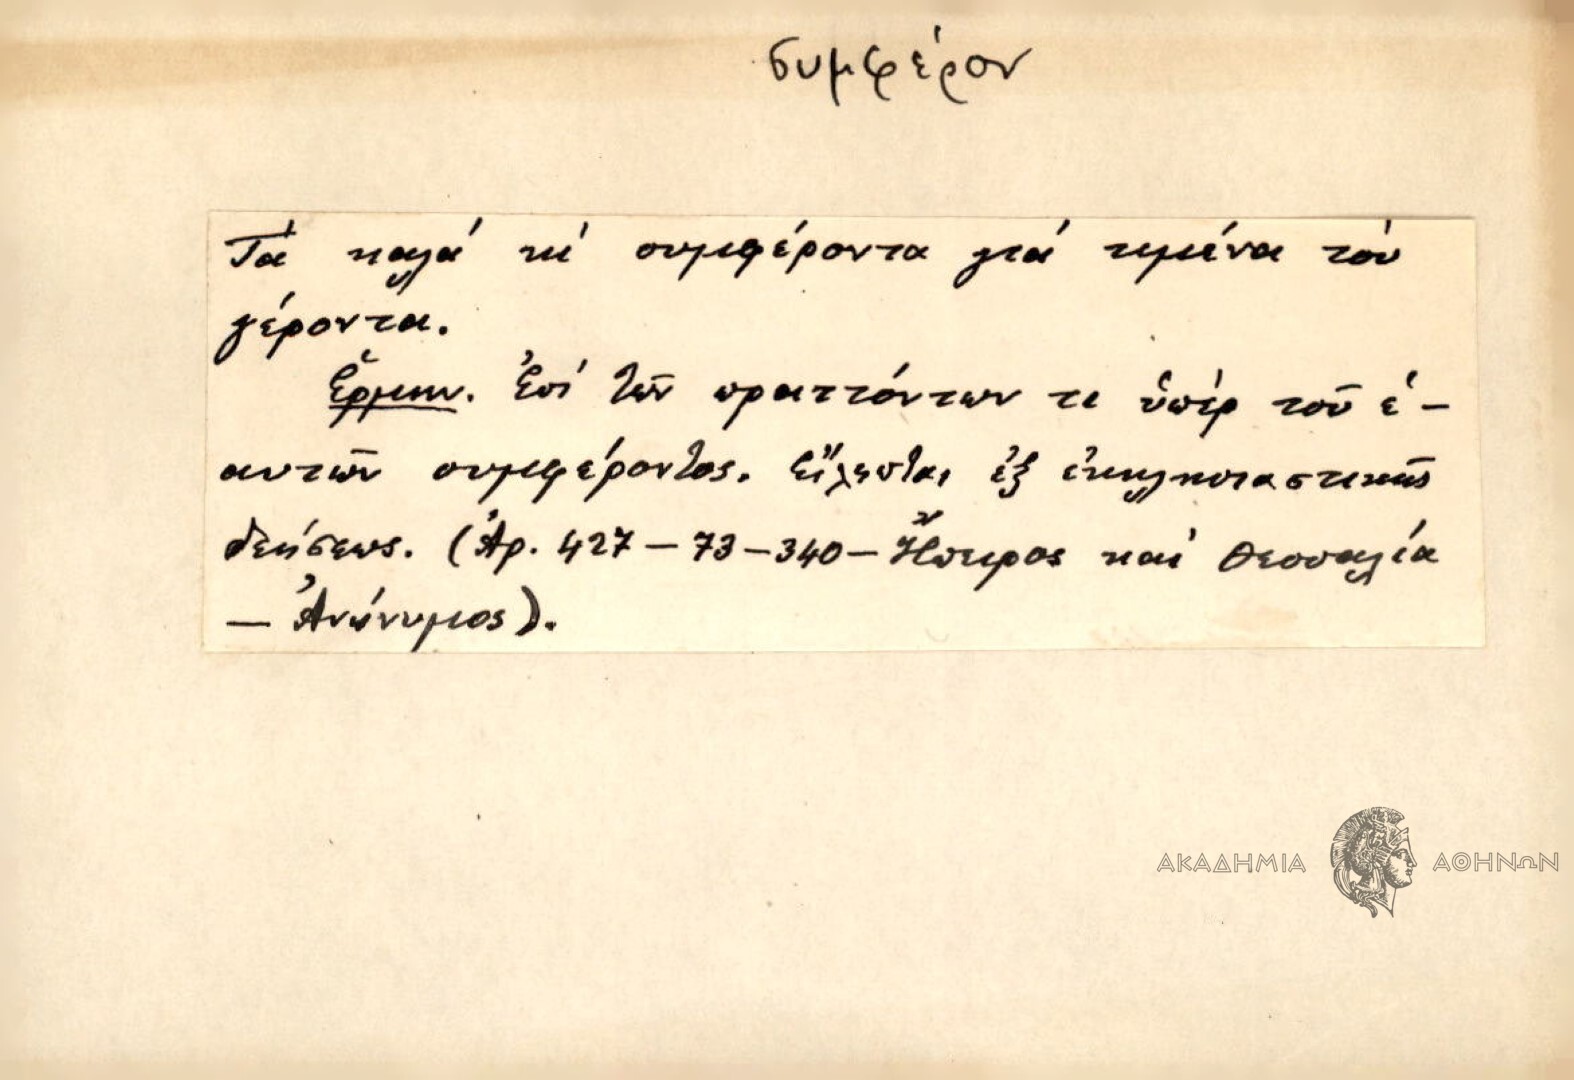 συμφέρον
Τά καλά κι' συμφέροντα γιά τιμένα τόν
γέροντα.
Ἑρμην. Ἐπί τῶν πραττόντων τι ὑπέρ τοῦ ἑ-
αυτῶν συμφέροντος. Εἴλησται ἐξ ἐκκλησιαστικῆς
δεήσεως. (Ἀρ. 427 – 73 – 340 – Ἤπειρος καί Θεσσαλία
– Ἀνώνυμος).
ΑΚΑΔΗΜΙΑ ΑΘΗΝΩΝ